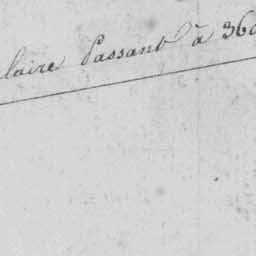 laire Passant à 360